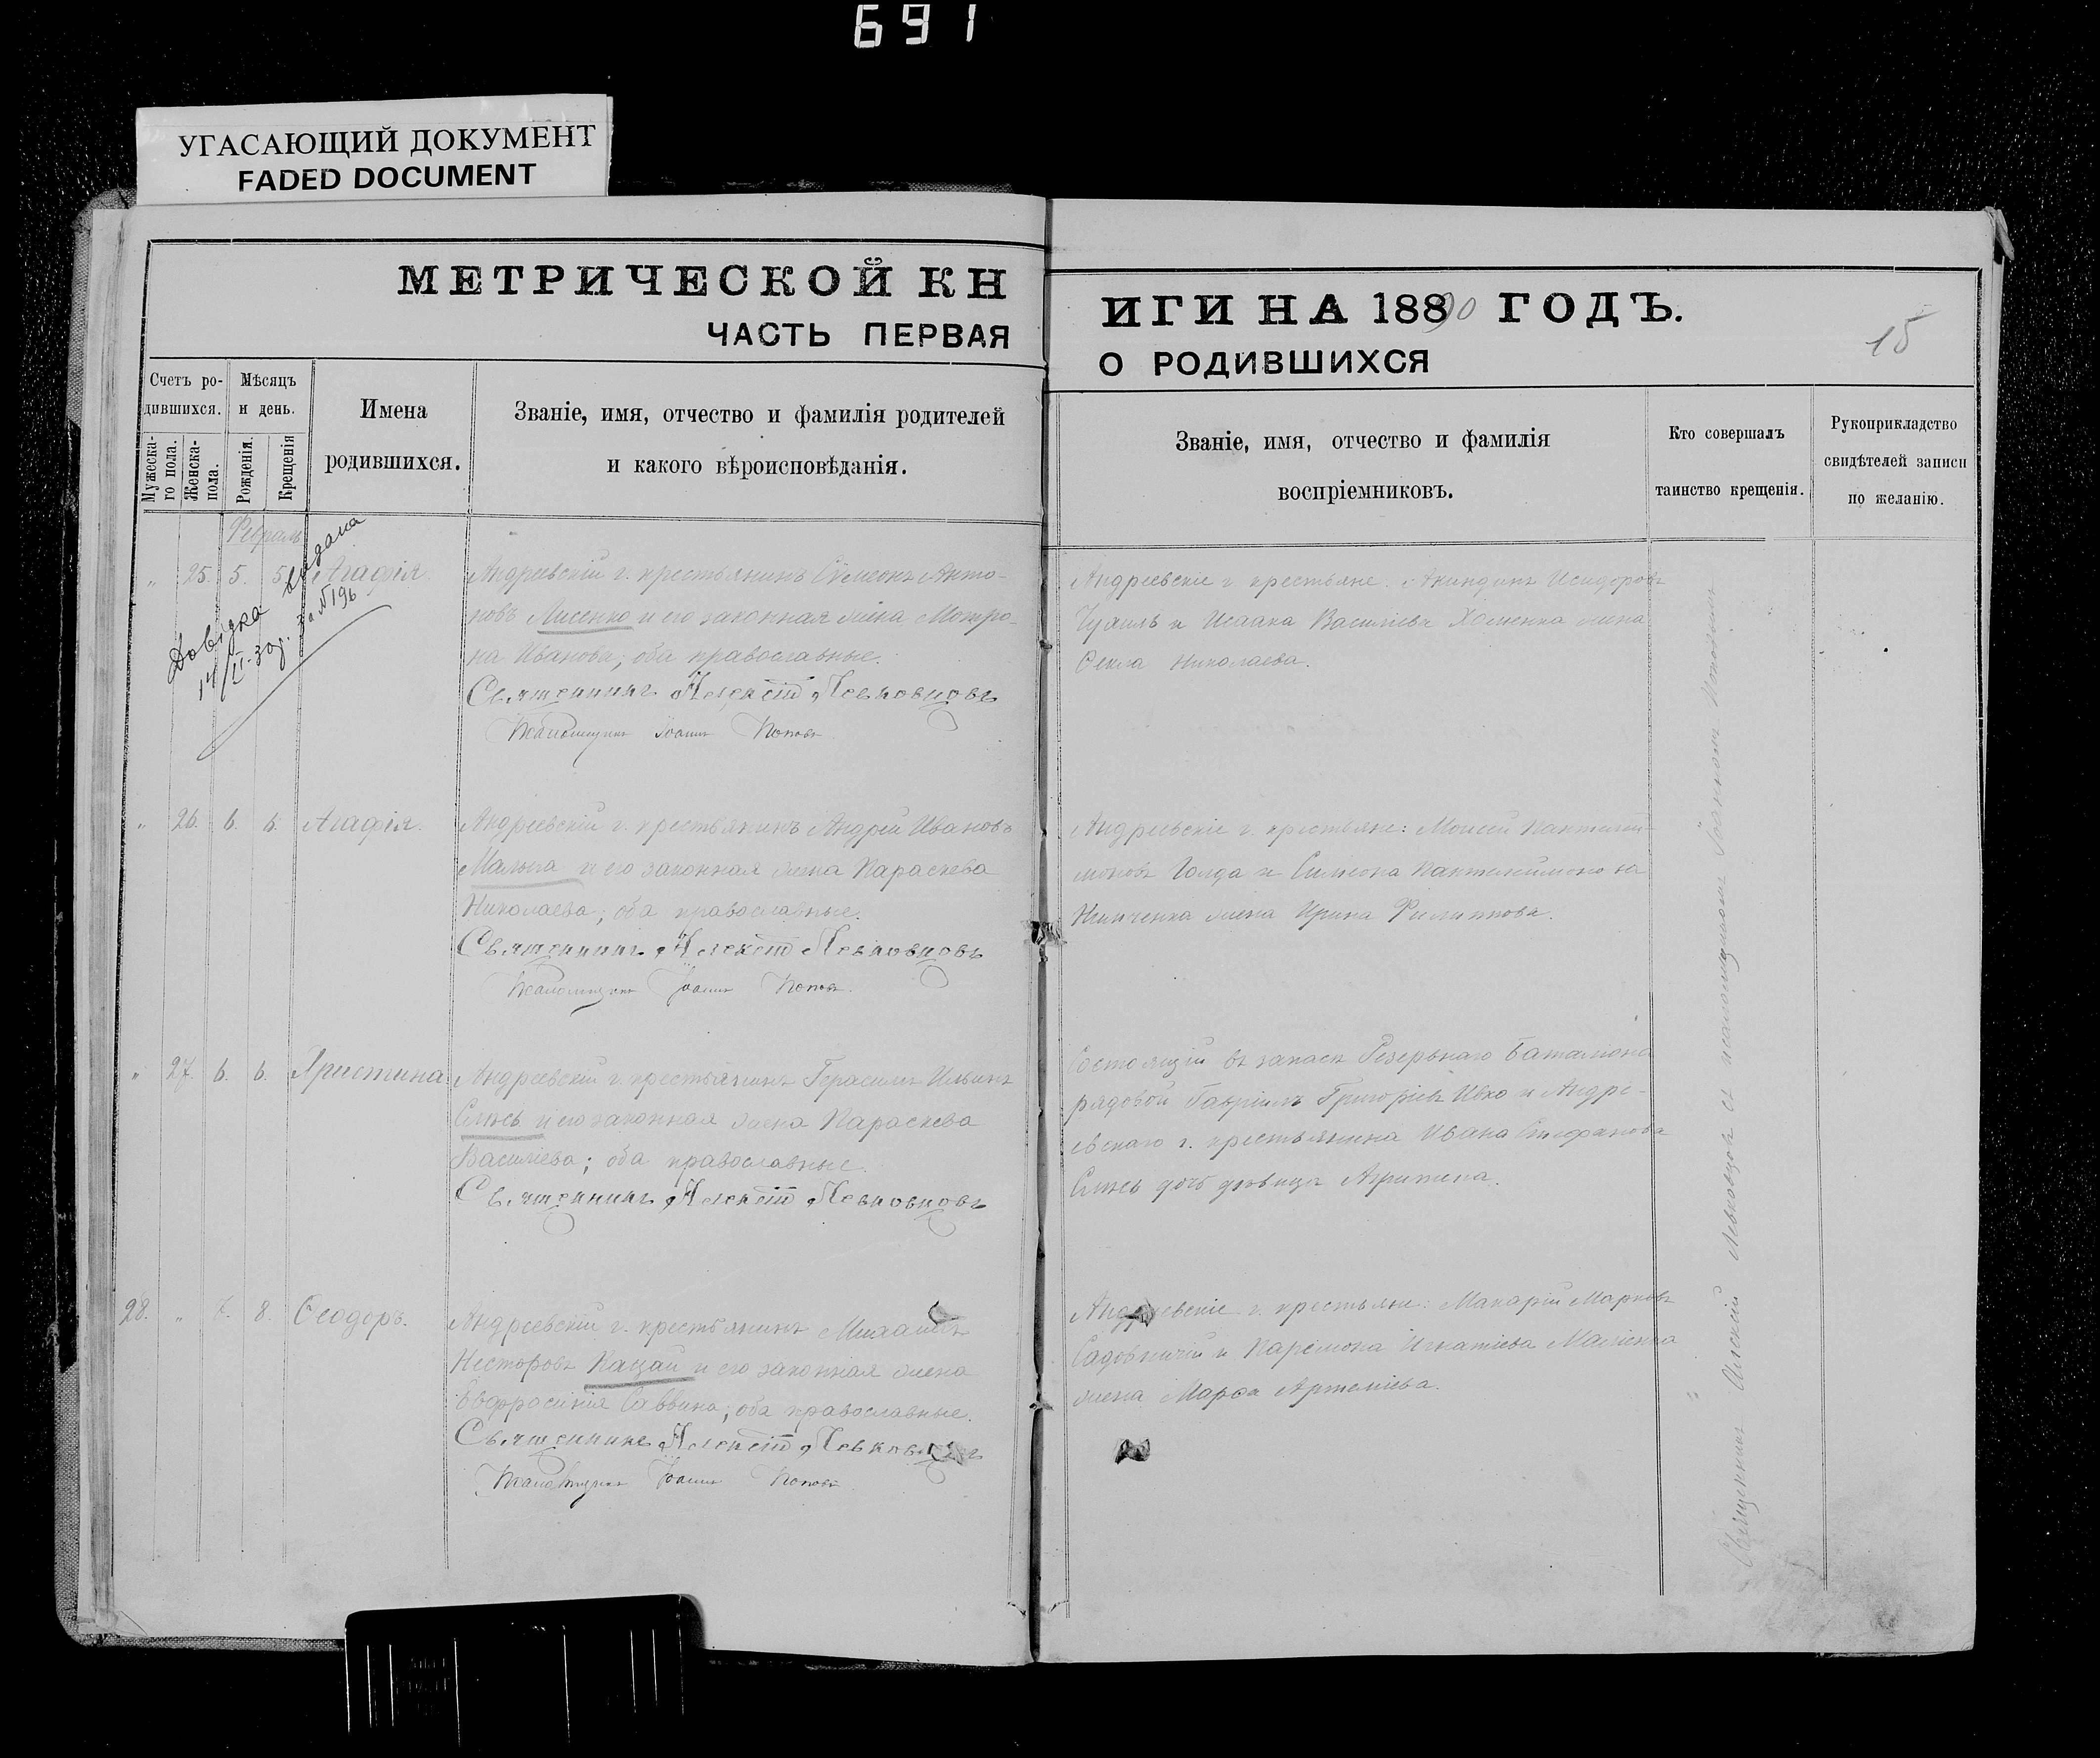 691
УГАСАЮЩИЙ ДОКУМЕНТ
FADED DOCUMENT
МЕТРИЧЕСКОЙ КН
ИГИ НА 18890 ГОДЪ.
ЧАСТЬ ПЕРВАЯ
О РОДИВШИХСЯ
15
Счетъ ро-
дившихся.
Мужеска-
го пола.
Женска-
пола.
Мѣсяцъ
и день.
Рожденія.
Крещенія
Имена
родившихся.
Званіе, имя, отчество и фамилія родителей
и какого вѣроисповѣданія.
Званіе, имя, отчество и фамилія
воспріемниковъ.
Кто совершалъ
таинство крещенія.
Рукоприкладство
свидѣтелей записи
по желанію.
Февраль
" 25. 5. 5. Агафія.
Довідка видана
14/II-30р. за №196
Андреевскій г. крестьянинъ Сѵмеонъ Анто-
новъ Лисенко и его законная жена Мотро-
на Иванова; оба православные.
Священникъ Алексій Левковцовъ
Псаломщикъ Іоаннъ Поповъ
Андреевскіе г. крестьяне: Акиндинъ Исидоровъ
и Исаака Василіева Хоменка жена
Ѳекла Николаева.
" 26. 6. 6. Агафія.
Андреевскій г. крестьянинъ Андрей Ивановъ
Малыга и его законная жена Параскева
Николаева; оба православные.
Священникъ Алексій Левковцовъ
Псаломщикъ Іоаннъ Поповъ.
Андреевскіе г. крестьяне: Моисей Пантелей-
моновъ Голда и Симеона Пантелеимонова
жена Ирина Филиппова.
" 27. 6. 6. Христина
Андреевскій г. крестьянинъ Герасимъ Ильинъ
и его законная жена Параскева
Василіева; оба православные.
Священникъ Алексій Левковцовъ
Состоящій въ запасѣ Резервнаго баталіона
рядовой Гавріилъ Григоріевъ Ивко и Андре-
евскаго г. крестьянина Ивана Стефанова
дочь дѣвица
28. " 7. 8. Ѳеодоръ.
Андреевскій г. крестьянинъ Михаилъ
Несторовъ Кацай и его законная жена
Евфросинія Саввина; оба православные.
Священникъ Алексій Левковцовъ
Псаломщикъ Іоаннъ Поповъ
Андреевскіе г. крестьяне: Макарій Марковъ
Садовничій и Парѳмона Игнатіева
жена Марѳа Артеміева.
Священникъ Алексій Левковцовъ съ псаломщикомъ Іоанномъ Поповымъ